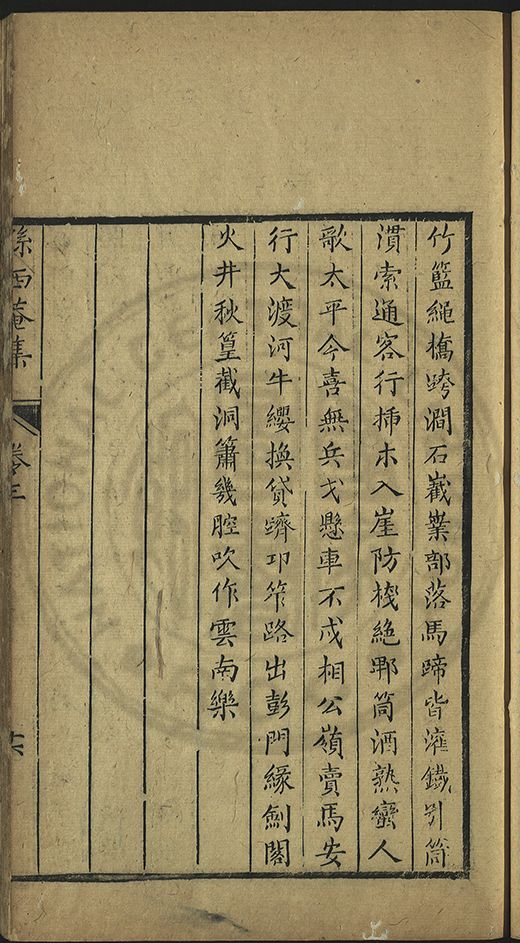 竹籃繩橋跨澗石嶻嶪部落馬蹄皆灌鐵引筒
潰索通客行揷木入崖防棧絶郫筒酒熟蠻人
歌太平今喜無兵戈懸車不戍相公嶺賣馬安
行大渡河牛纓換貸躋邛笮路出彭門緣劍閣
火井秋篁截洞簫幾腔吹作雲南樂
孫西菴集
卷三